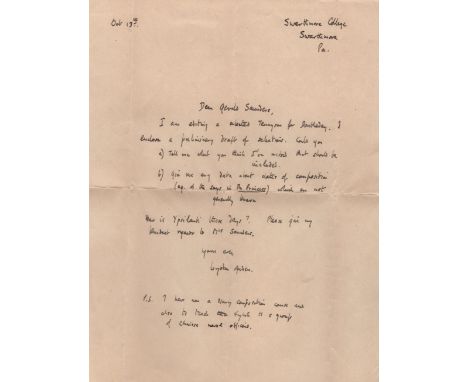 Oct 19th.
Swarthmore College
Swarthmore
Pa.
Dear Gerald Saunders,
I am editing a selected Tennyson for Doubleday. I
enclose a preliminary draft of selections. Could you
a) Tell me what you think I've missed that should be
included.
b) Give me any data about dates of composition
(eg. of the songs in The Princess) which are not
generally known
How is Ypsilanti these days? Please give my
kindest regards to Mrs Saunders.
yours ever
Wystan Auden.
P.S. I have now a Navy composition course and
also to teach English to a group
of Chinese naval officers.